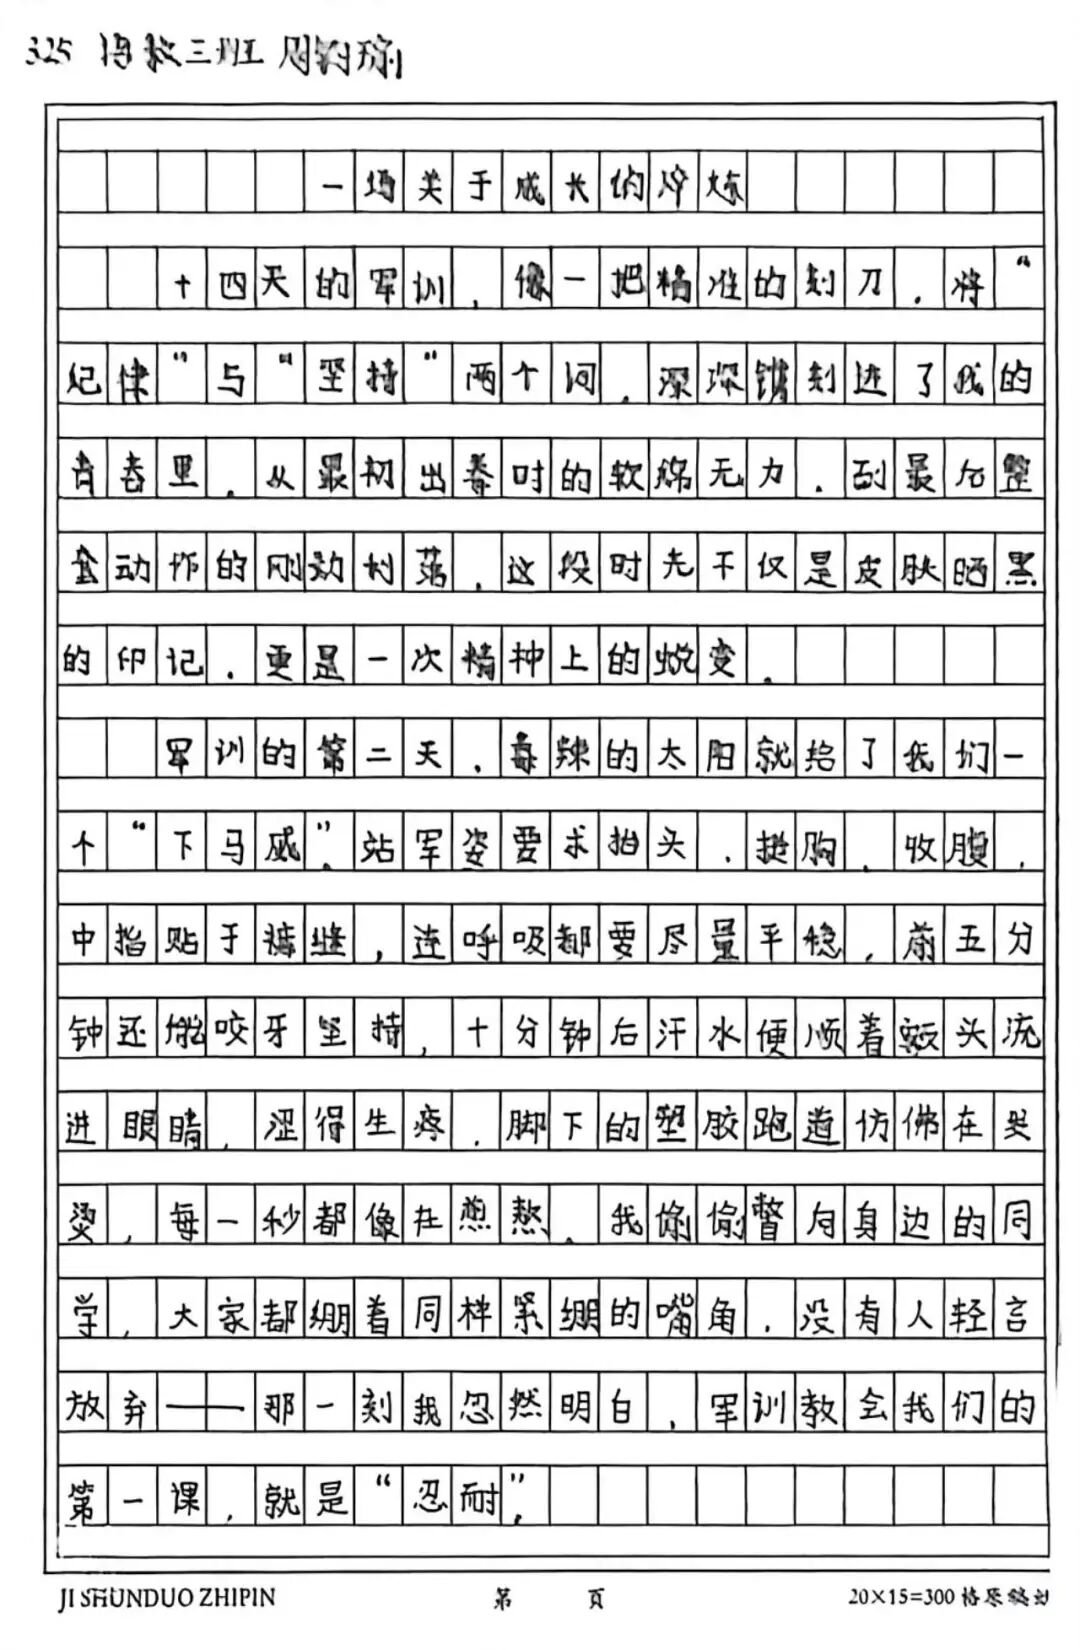 325 三班 周
一场关于成长的淬炼
十四天的军训，像一把精准的刻刀，将“
纪律”与“坚持”两个词，深深镌刻进了我的
青春里，从最初出拳时的软绵无力，到最后整
套动作的刚劲利落，这段时光不仅是皮肤晒黑
的印记，更是一次精神上的蜕变。
军训的第二天，毒辣的太阳就给了我们一
个“下马威”。站军姿要求抬头、挺胸、收腹，
中指贴于裤缝，连呼吸都要尽量平稳，前五分
钟还能咬牙坚持，十分钟后汗水便顺着额头流
进眼睛，涩得生疼，脚下的塑胶跑道仿佛在发
烫，每一秒都像在煎熬。我偷偷瞥向身边的同
学，大家都绷着同样紧绷的嘴角，没有人轻言
放弃——那一刻我忽然明白，军训教会我们的
第一课，就是“忍耐”。
JI SHUNDUO ZHIPIN 第 页 20×15=300